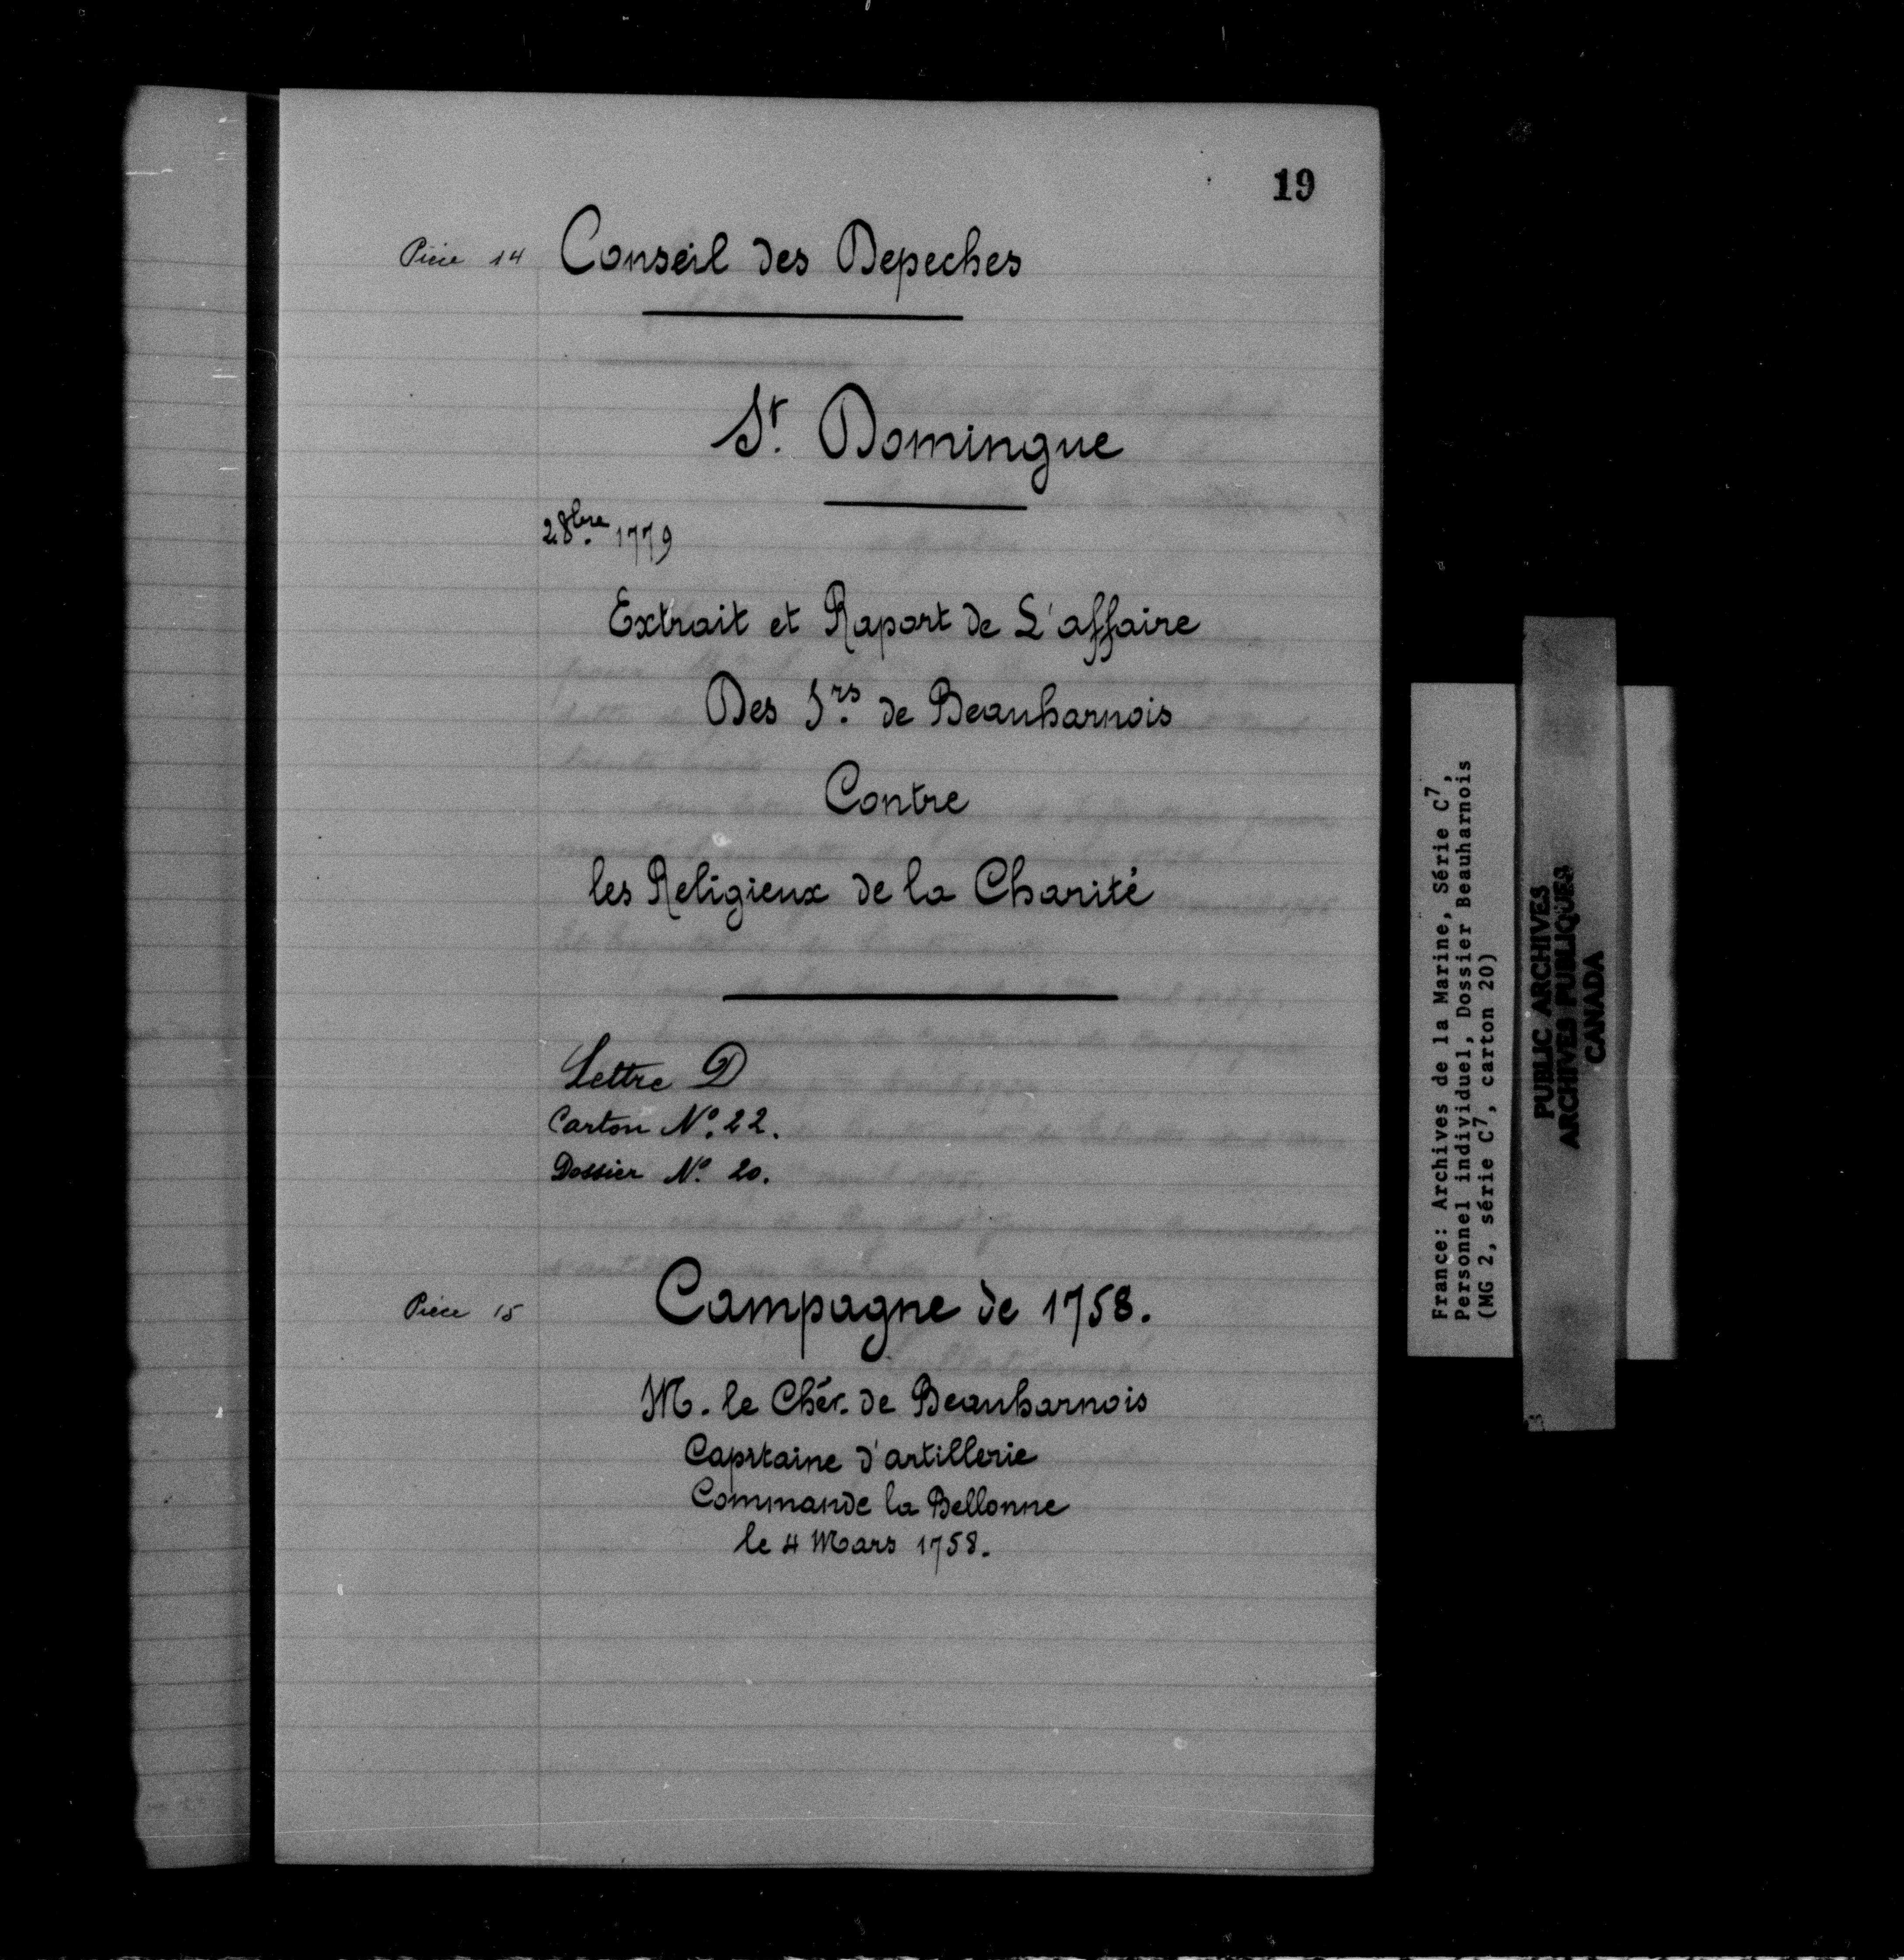 19
Pièce 14 Conseil des Depeches
St. Domingue
2 8bre. 1779
Extrait et Raport de L'affaire
Des Srs. de Beauharnois
Contre
les Religieux de la Charité
Lettre D
Carton No. 22.
Dossier No. 20.
Pièce 15 Campagne de 1758.
M. le Chér. de Beauharnois
Capitaine d'artillerie
Commande la Bellonne
le 4 Mars 1758.
France: Archives de la Marine, Série C7,
Personnel individuel, Dossier Beauharnois
(MG 2, série C7, carton 20)
PUBLIC ARCHIVES
ARCHIVES PUBLIQUES
CANADA